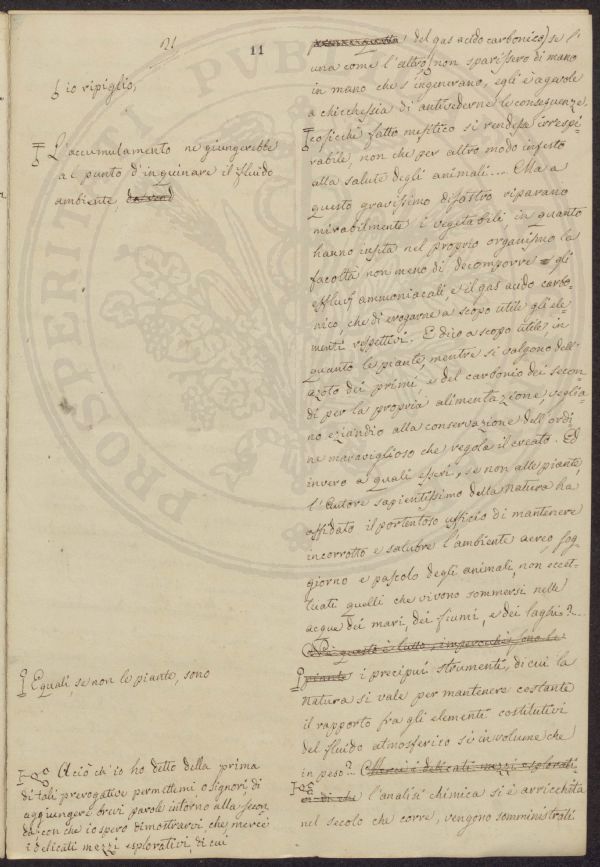 21
11
io ripiglio,
L'accumulamento ne giungerebbe
al punto d'inquinare il fluido
ambiente,
E quali se non le piante, sono
A ciò ch'io ho detto della prima
di tali prerogative permettemi o signori, di
aggiungere brevi parole intorno alla secon=
da: con che io spero dimostrarvi, che, mercè
i delicati mezzi esplorativi, di cui
del gas acido carbonico) se l'
una come l'altro non sparissero di mano
in mano che s'ingenerano, egli è agevole
a chicchessia di antivederne le conseguenze,
cosicchè fatto mefitico si rendesse irrespi=
rabile, non che per altro modo infesto
alla salute degli animali... Ma a
questo gravissimo disastro riparano
mirabilmente i vegetabili, in quanto
hanno insita nel proprio organismo la
facoltà non meno di decomporre gli
effluvj ammoniacali, e il gas acido carbo=
nico, che di erogarne a scopo utile gli ele=
menti rispettivi. E dico a scopo utile, in
quanto le piante, mentre si valgono dell'
azoto dei primi e del carbonio dei secon=
di per la propria alimentazione, veglia=
no eziandio alla conservazione dell'ordi
ne maraviglioso che regola il creato. Ed
invero a quali esseri, se non alle piante,
l'Autore sapientissimo della natura ha
affidato il portentoso ufficio di mantenere
incorrotto e salubre l'ambiente aereo, sog=
giorno e pascolo degli animali, non eccet=
tuati quelli che vivono sommersi nelle
acque dei mari, dei fiumi, e dei laghi?...
Nè questo è tutto, imperocchè sono le
piante i precipui strumenti, di cui la
natura si vale per mantenere costante
il rapporto fra gli elementi costitutivi
del fluido atmosferico sì in volume che
in peso? Mercè i delicati mezzi esplorati
vi di che l'analisi chimica si è arricchita
nel secolo che corre, vengono somministrati
PROSPERITATI PVBL